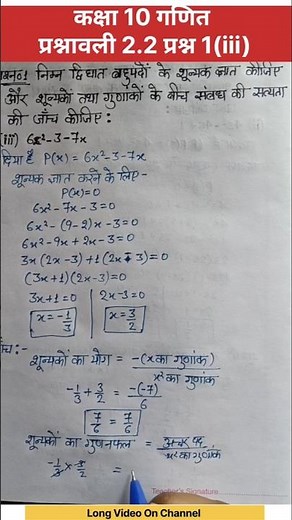 कक्षा 10 गणित
प्रश्नावली 2.2 प्रश्न 1(iii)
निम्न द्विघात बहुपदों के शून्यक ज्ञात कीजिए
और शून्यकों तथा गुणांकों के बीच संबंध की सत्यता
की जाँच कीजिए :
(iii) 6x²-3-7x
दिया है P(x) = 6x²-3-7x
शून्यक ज्ञात करने के लिए-
P(x)=0
6x²-7x-3=0
6x²-(9-2)x-3=0
6x²-9x+2x-3=0
3x(2x-3)+1(2x-3)=0
(3x+1)(2x-3)=0
3x+1=0 | 2x-3=0
x=-1/3 x=3/2
शून्यकों का योग = -(x का गुणांक)/x² का गुणांक
-1/3+3/2 = -(-7)/6
7/6 = 7/6
शून्यकों का गुणनफल = अचर पद/x² का गुणांक
-1/3 x 3/2 =
Teacher's Signature
Long Video On Channel